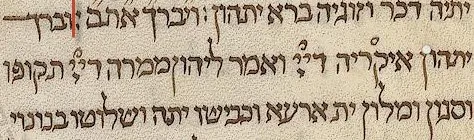 יתיה דכר וזוגיה ברא יתהון׃ ויברך אתם וברך
יתהון איקריה דייי ואמר ליהון ממרה דייי תקופו
וסגון ומלון ית ארעא וכבישו יתה ושלוטו בנוניי